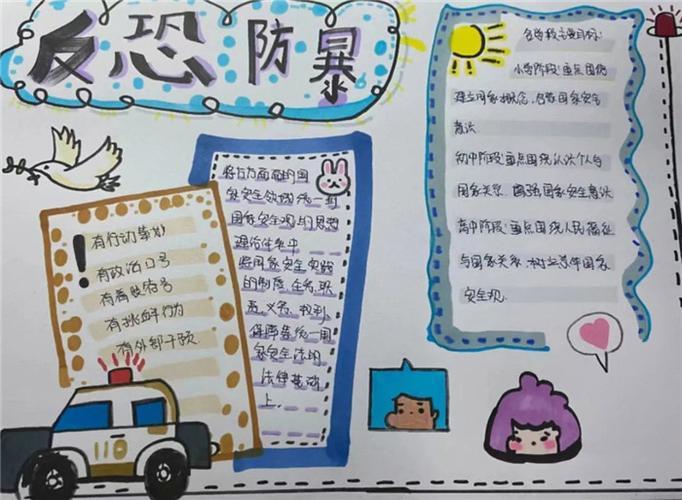 反恐防暴
有行动策划
有政治口号
有着装符号
有挑衅行为
有外部干预
将各方面面的国
家安全领域统一到
国家安全观的思想
理论体系中
将国家安全实践
的制度、任务、职
责、义务、权利
保障等统一用
家安全法的
法律基础
上
各学段主要目标:
小学阶段:重点围绕
建立国家概念,启蒙国家安全
意识
初中阶段:重点围绕认识个人与
国家关系,增强国家安全意识
高中阶段:重点围绕人民福祉
与国家关系,树立总体国家
安全观
110